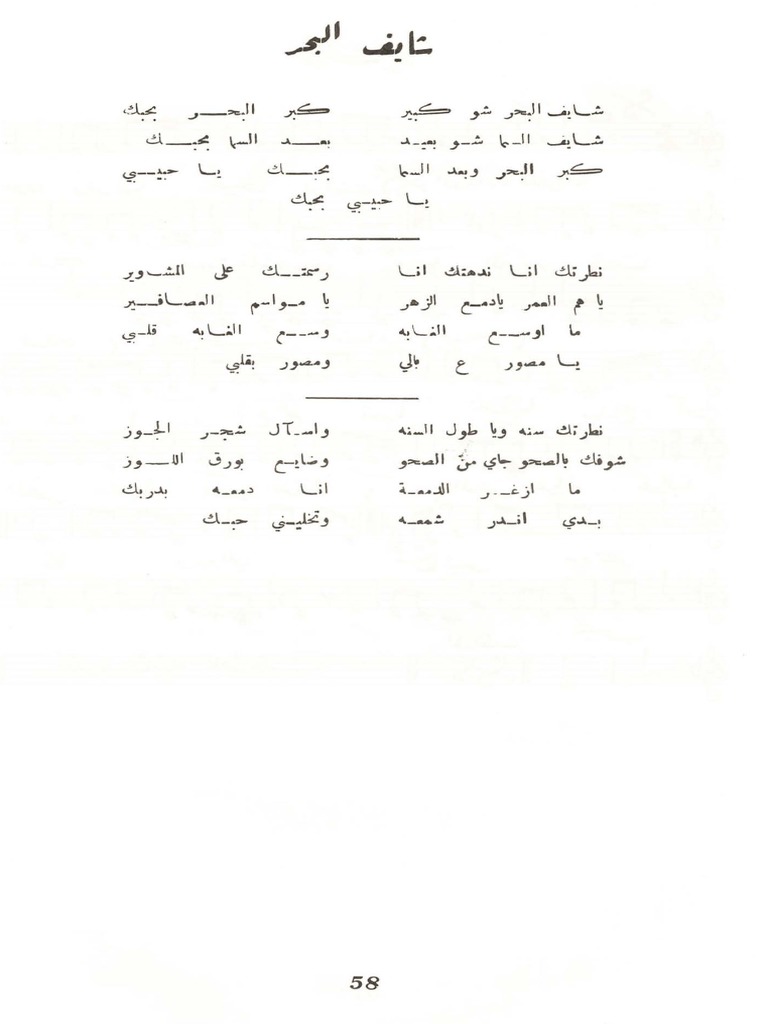 شايف البحر
شايف البحر شو كبير كبر البحر بحبك
شايف السما شو بعيد بعد السما بحبك
كبر البحر وبعد السما بحبك يا حبيبي
يا حبيبي بحبك
نطرتك انا ندهتك انا رسمتك على المشاوير
يا هم العمر يادمع الزهر يا مواسم العصافير
ما اوسع الغابه وسع الغابه قلبي
يا مصور ع بالي ومصور بقلبي
نطرتك سنه ويا طول السنه واسآل شجر الجوز
شوفك بالصحو جاي منّ الصحو وضايع بورق اللوز
ما ازغر الدمعة انا دمعه بدربك
بدي اندر شمعه وتخليني حبك
58